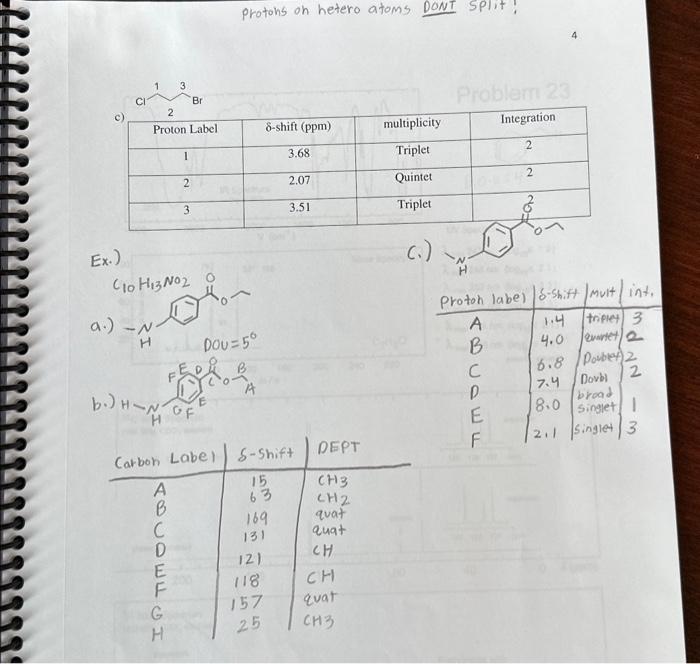 Protons on hetero atoms DONT split!
4
1 3
Cl Br
2
c)
Proton Label δ-shift (ppm) multiplicity Integration
1 3.68 Triplet 2
2 2.07 Quintet 2
3 3.51 Triplet 2
Ex.)
C10 H13 NO2
O
O
a.) N
H
DOU = 5°
C.)
O
O
N
H
Proton label δ-shift mult int.
A 1.4 triplet 3
B 4.0 quartet 2
C 6.8 Doublet 2
D 7.4 Doubl 2
E 8.0 broad singlet 1
F 2.1 singlet 3
b.) H N
H
G F E
F E D C O B
O A
Carbon Label δ-Shift DEPT
A 15 CH3
B 63 CH2
C 169 quat
D 131 quat
E 121 CH
F 118 CH
G 157 quat
H 25 CH3
Problem 23